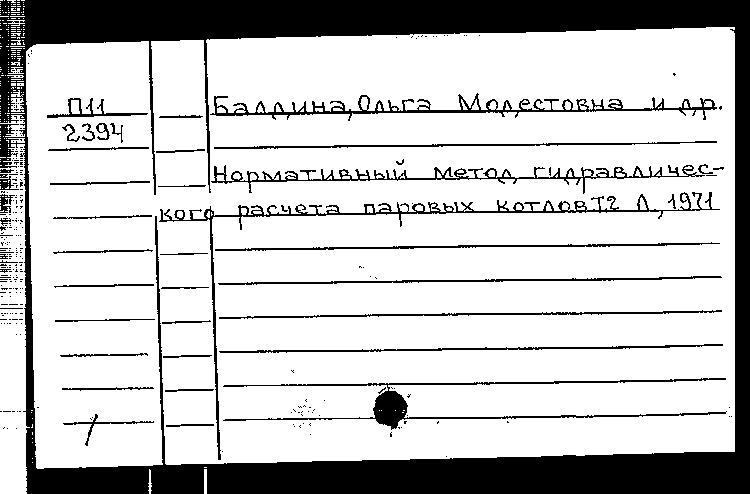 П11
2394
Балдина, Ольга Модестовна и др.
Нормативный метод гидравличес-
кого расчета паровых котлов Т.2 Л, 1971